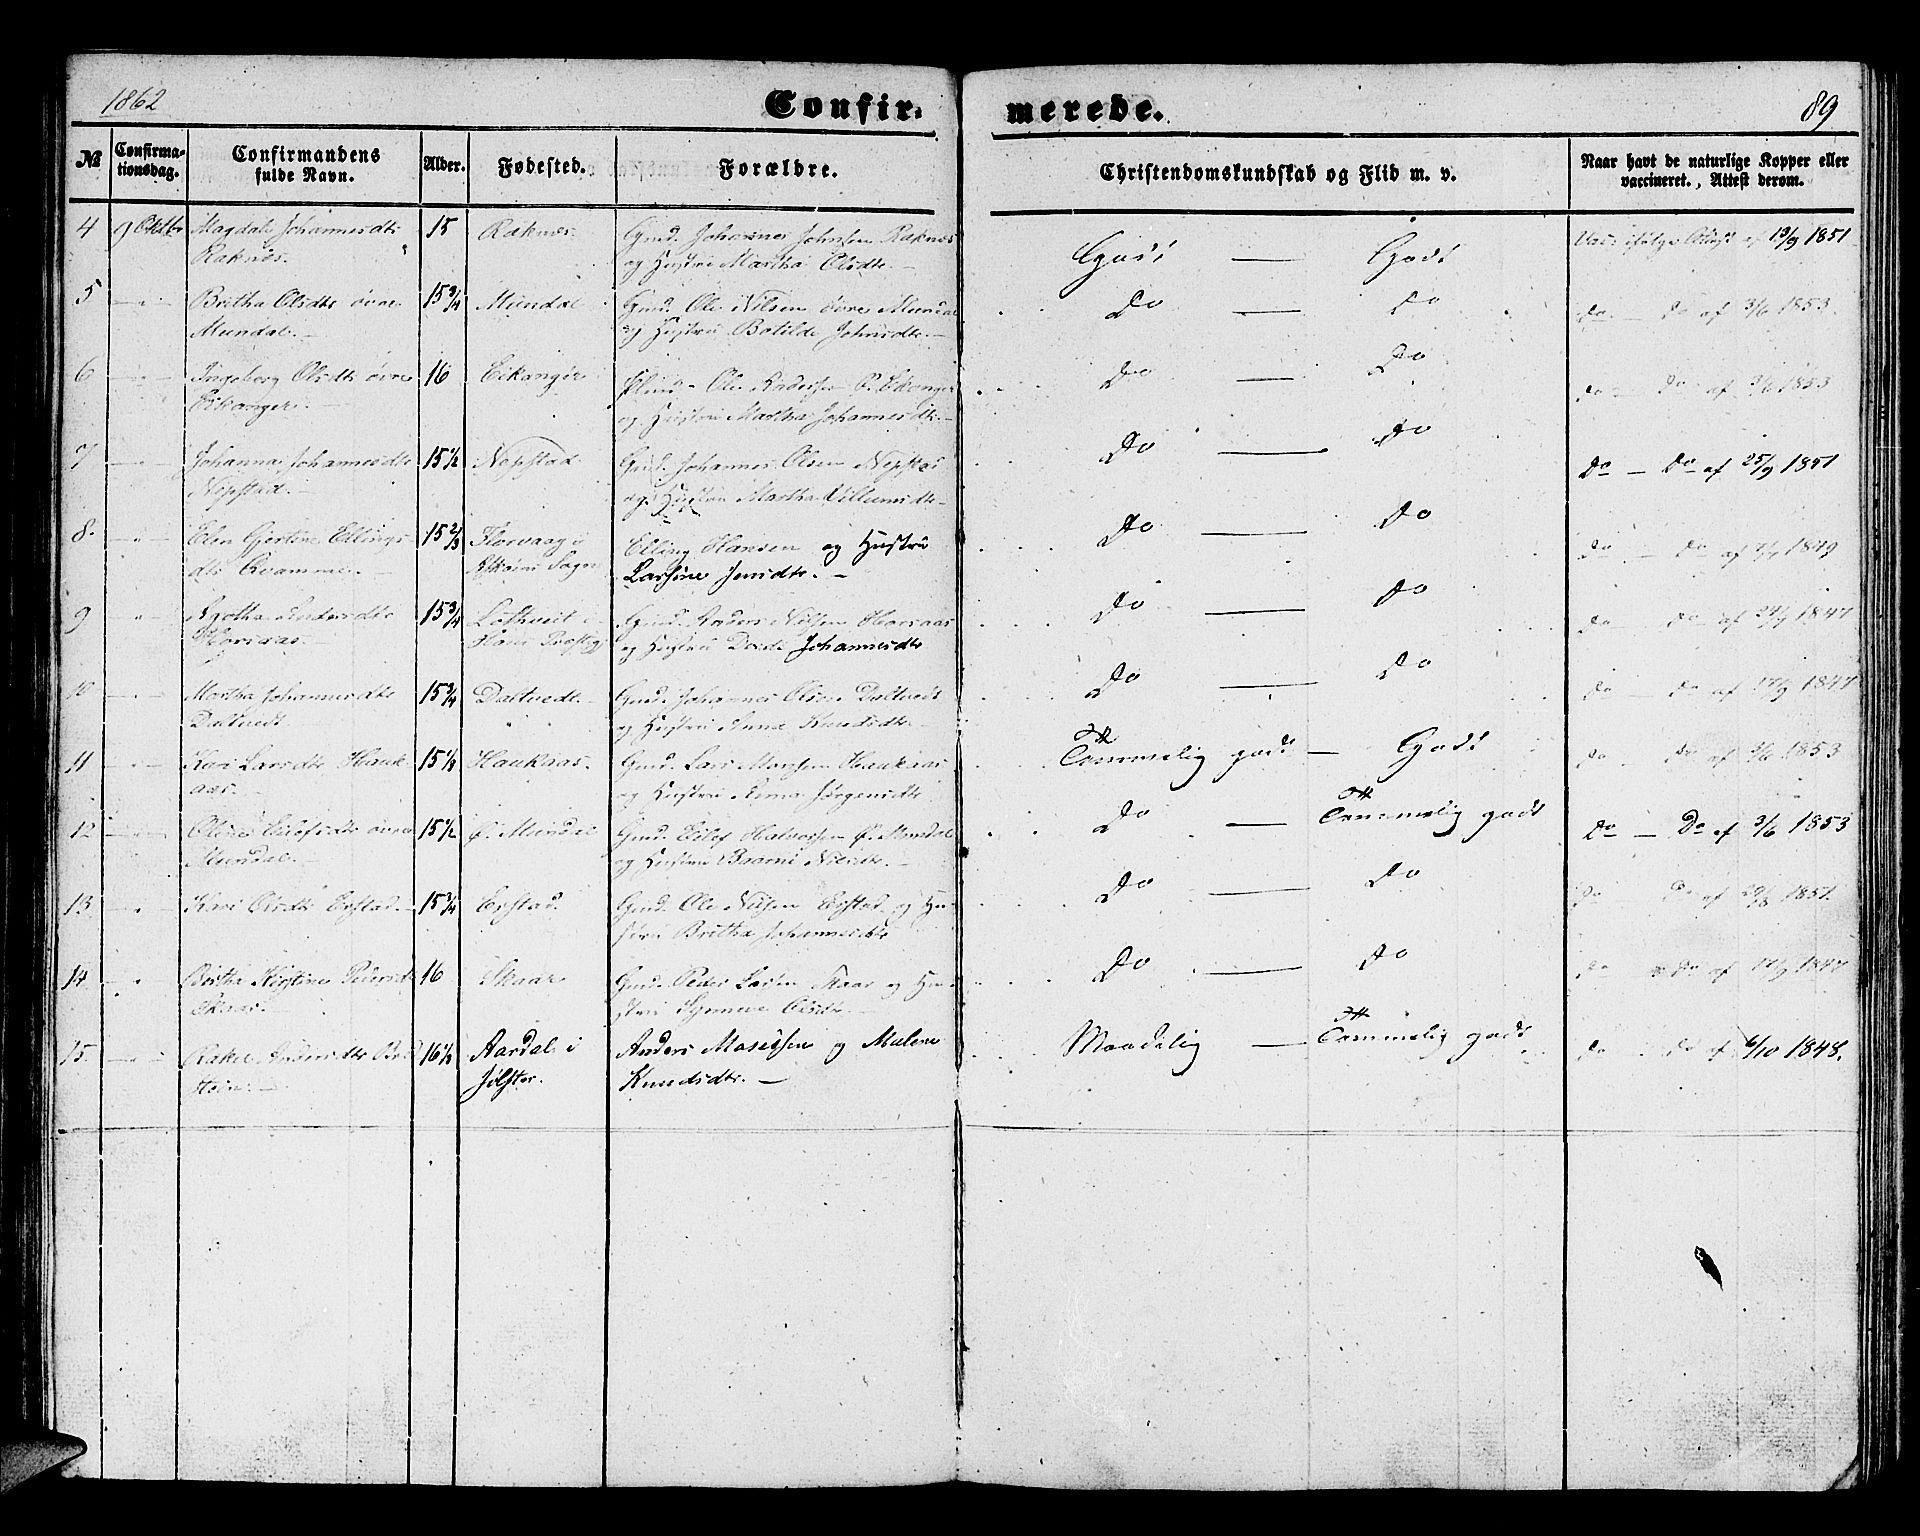 1862
Confir=
merede.
89
№
Confirma-
tionsdag.
Confirmandens
fulde Navn.
Alder.
Fødested.
Forældre.
Christendomskundskab og Flid m. v.
Naar havt de naturlige Kopper eller
vaccineret., Attest derom.
4 9 Oktbr Magdale Johannesdtr 15 Raknes. Gmd. Johannes Johnsen Raknes
Raknes. og Hustru Martha Olsdtr. —
Godt — Godt af 13/9 1851
5 — " — Britha Olsdtr øvre 15 3/4 Mundal Gmd. Ole Nilsen øvre Mundal
Mundal. — og Hustru Botilde Johnsdtr. —
Do — Do Do — Do af 3/6 1853.
6 — " — Ingeborg Olsdtr øvre 16 Eikanger Ole Andersen Ø. Ekanger
Eikanger. — og Hustru Martha Johannesdtr. —
Do — Do Do — Do af 3/6 1853
7 — " — Johanna Johannesdtr 15 1/2 Nepstad Gmd. Johannes Olsen Nepstad
Nepstad. — og Hustru Martha Villumsdtr —
Do — Do Do — Do af 25/9 1851
8. " Elen Gjertine Ellings 15 2/3 Florvaag i Elling Hansen og Hustru
dtr Qvamme. — Askøens Sogn Larsine Jensdtr. —
Do — Do Do Do af 1849
9 " Agatha Andersdtr 15 3/4 Lothveit i Gmd. Anders Nilsen Horsaas
Horsaas. Hous Præstegj og Hustru Dorte Johannesdtr
Do — Do Do Do af 24/9 1847
10 — " — Martha Johannesdtr 15 3/4 Daltvedt. — Gmd. Johannes Olsen Daltvedt
Daltvedt og Hustru Anna Knudsdtr —
Do — Do Do — Do af 17/9 1847
11 — " — Kari Larsdtr Hauk 15 1/3 Haukaas. Gmd. Lars Monsen Haukaas
aas. — og Hustru Anna Jørgensdtr
Temmelig godt — Godt Do Do af 3/6 1853
12 — " — Eilefsdtr øvre 15 1/2 Ø. Mundal Gmd. Eilef Halvorsen Ø. Mundal
Mundal. — og Hustru Nilsdtr. —
Do — Temmelig godt Do — Do af 3/6 1853
13 " Kari Olsdtr Epstad. — 15 3/4 Epstad. Gmd. Ole Nilsen Epstad og Hu-
stru Britha Johannesdtr
Do — Do Do Do af 29/8 1851.
14 " Britha Kirstine Pedersdtr 16 Skaar Gmd. Peder Larsen Skaar og Hu-
Skaar. — stru Synneve Olsdtr. —
Do — Do Do Do af 17/9 1847
15. " Rakel Andersdtr 16 1/2 Aardal i Anders Mosessen og Malene
Jølster. Knudsdtr. —
Maadelig — Temmelig godt Do Do af 6/10 1848.